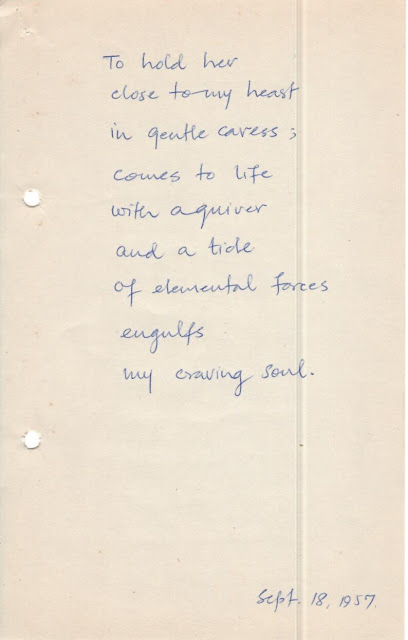 To hold her
close to my heart
in gentle caress;
comes to life
with a quiver
and a tide
of elemental forces
engulfs
my craving soul.
Sept. 18, 1957.